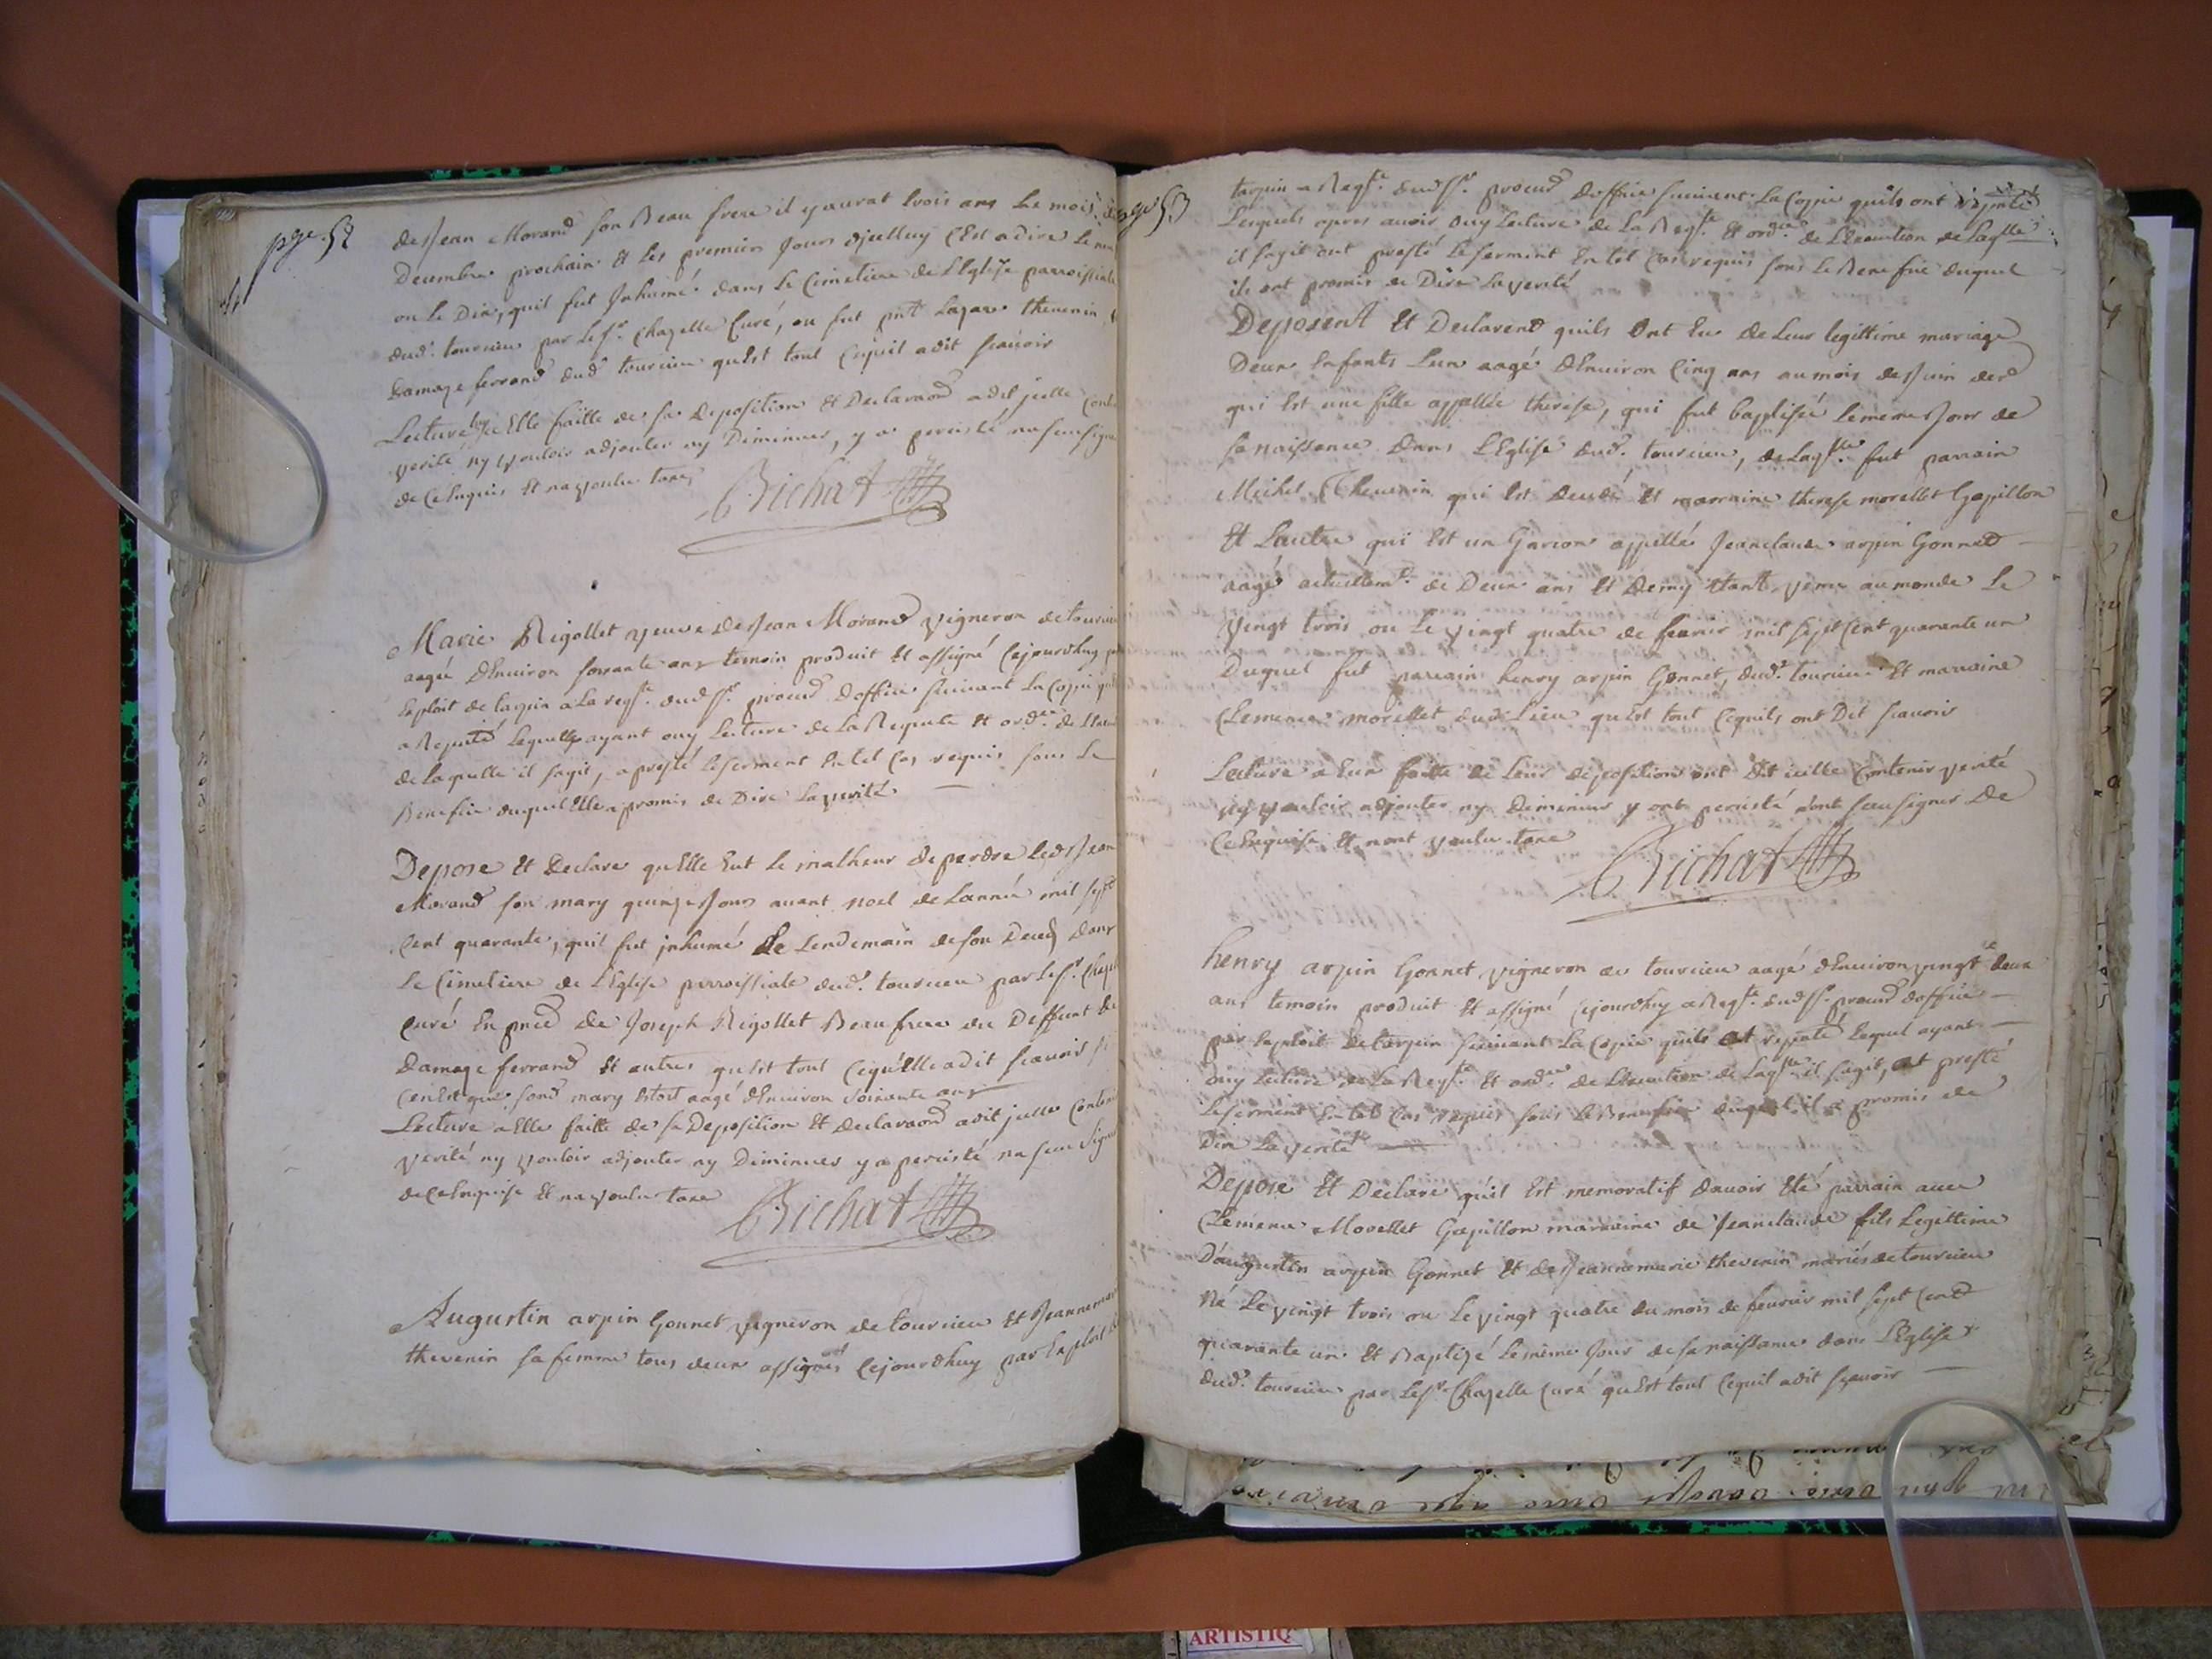 pge. 52
de Jean Morand son Beau frere il yaurat trois ans Le mois
Decembre prochain et Les premiers Jours djcelluy C'Est a dire Le
ou Le Dix, quil fut Inhumé dans Le Cimetiere de L'Eglise parroissiale
dud.t tourcieu par Le S.r Chazelle Curé, ou fut pnt Lazare thevenin
Damaze ferrand dud tourcieu qu'Est tout Cequil adit scavoir
Lecture a Elle faitte de sa Deposition Et Declaraon adit jcelle
verité ny vouloir adjouter ny Diminuer, y a percisté na sceu signer
de Ce Enquis Et na voulu taxe
Bichat
Marie Rigollet veuve de Jean Morand vigneron de tourcieu
aagée d'Environ soixante ans temoin produit Et assigné Cejourdhuy
Exploit de tarpin a La reqte. dud Sr. procurd Doffice suivant La Coppie
a Reputé Lequelle ayant ouy Lecture de La Requete Et ord.ce de
de laquelle il sagit, a presté Le serment En tel Cas requis sous Le
Benefice duquel Elle a promis de Dire La verité
Depose Et Declare qu'Elle Eut Le malheur de perdre Led Jean
Morand son mary quinze Jours avant noel de Lannée mil sept
Cent quarante, quil fut jnhumé Le Lendemain de son Deced dans
Le Cimetiere de L'Eglise parroissiale dud.t tourcieu par Le S.r
Curé En pnce de Joseph Rigollet Beau frere du Deffunt
Damaze ferrand Et autres qu'Est tout Cequ'Elle adit scavoir
Cen'Est que sond mary Estoit aagé d'Environ soixante ans
Lecture a Elle faitte de sa Deposition Et declaraon adit jcelle
verité ny vouloir adjouter ny Diminuer y a percisté na sceu signer
de Ce Enquise Et na voulu taxe
Bichat
Augustin arpin Gonnet vigneron de tourcieu Et Jeannemarie
thevenin sa femme tous deux assignés Cejourdhuy par Exploit
53
tarpin a Reqte. dud Sr. procurd doffice suivant La Coppie quils ont
Lequels apres avoir ouy Lecture de La Reqte. Et ord.ce de L'Execution de Laqlle
il sagit ont presté Le serment En tel Cas requis sous Le Benefice duquel
ils ont promis de Dire La verité
Deposent Et Declarent quils Ont Eu de Leur legittime mariage
Deux Enfants Lun aagé d'Environ Cinq ans au mois de Juin der
qui Est une fille appellée therese, qui fut baptisée Lememe Jour de
sa naissance dans L'Eglise dud.t tourcieu, de Laqlle fut parrain
Michel Thevenin qui Est decedé Et marraine therese morellet Gapillon
Et Lautre qui Est un Garcon appellé Jeanclaude arpin Gonnet
aagé actuellemt. de Deux ans Et Demy Etant venu au monde Le
vingt trois ou Le vingt quatre de fevrier mil sept Cent quarante un
Duquel fut parrain henry arpin Gonnet, dud.t tourcieu Et marraine
Clemence morellet dud Lieu qu'Est tout Cequils ont Dit scavoir
Lecture a Eux faitte de Leur deposition ont dit icelle Contenir verité
ny vouloir adjouter ny diminuer y ont percisté nont sceu signer De
Ce Enquise Et nont voulu taxe
Bichat
henry arpin Gonnet vigneron de tourcieu aagé d'Environ vingt deux
ans temoin produit Et assigné Cejourdhuy a Reqte. dud Sr. procurd doffice
par Exploit de tarpin suivant La Copie quils at reputé Lequel ayant
ouy Lecture de La Reqte. Et ord.ce de L'Execution de Laqlle il sagit, at presté
Le serment En tel Cas requis sous Le Benefice duquel il a promis de
Dire La verité
Depose Et Declare quil Est memoratif davoir Eté parrain avec
Clemence Morellet Gapillon marraine de Jeanclaude fils Legittime
D'augustin arpin Gonnet Et de Jeannemarie thevenin mariés de tourcieu
Né Le vingt trois ou Le vingt quatre du mois de fevrier mil sept Cent
quarante un Et Baptizé Lememe Jour de sa naissance dans L'Eglise
dud.t tourcieu par Le Sr. Chazelle Curé qu'Est tout Cequil adit scavoir
ARTISTIQ